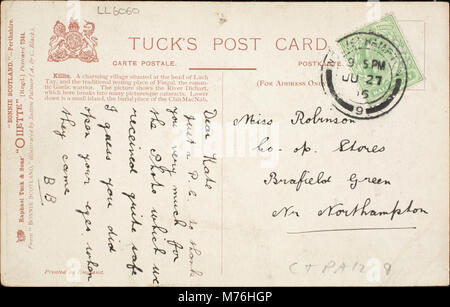 LL6060
TUCK'S POST CARD
CARTE POSTALE.
(FOR ADDRESS ONLY)
Killin. A charming village situated at the head of Loch
Tay, and the traditional resting place of Fingal, the roman-
tic Gaelic warrior. The picture shows the River Dochart,
which here breaks into many picturesque cataracts. Lower
down is a small island, the burial place of the Clan MacNab.
"BONNIE SCOTLAND,"—Perthshire.
Raphael Tuck & Sons' "OILETTE" [Regd.] Postcard
From "BONNIE SCOTLAND," illustrated by Sutton Palmer (A. & C. Black).
Dear Kate
Just a P.C. to thank
you very much for
the Photo which we
received quite safe
I guess you did
open your eyes when
they came
B.B.
9 PM
JU 27
9
Miss Robinson
Co. op. Stores
Brafield Green
Nr Northampton
Printed in England.
alamy
Image ID: M76HGP
www.alamy.com